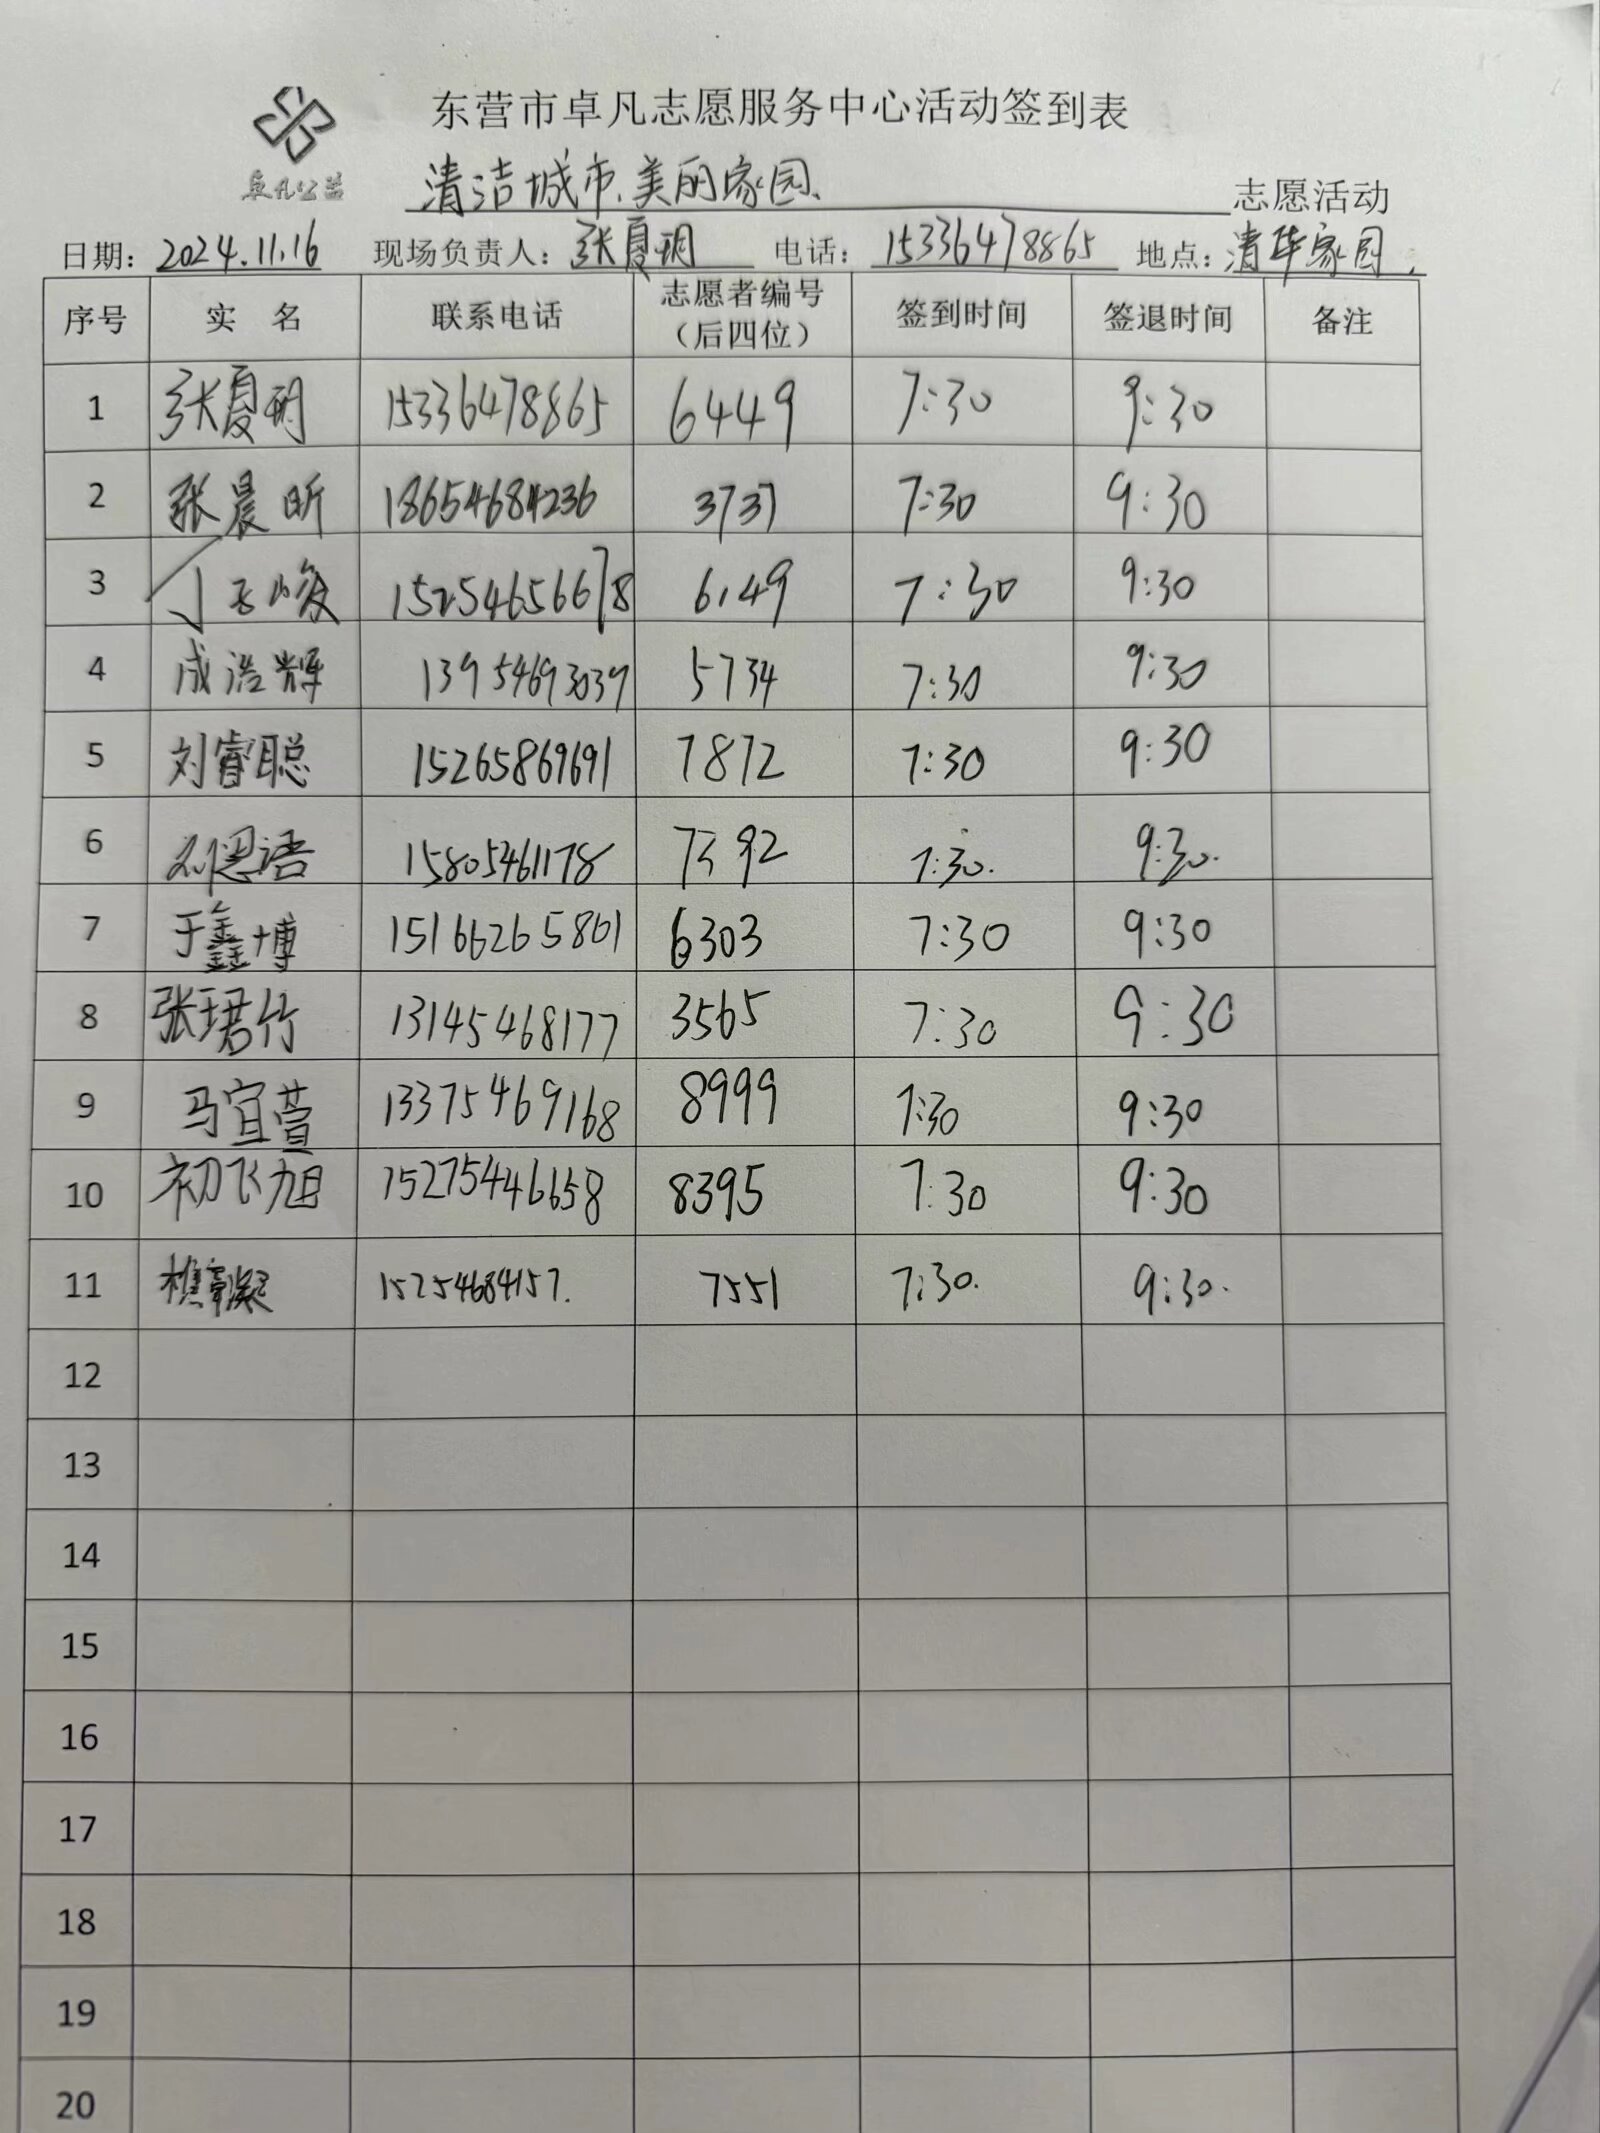 东营市卓凡志愿服务中心活动签到表
卓凡公益
清洁城市、美丽家园、 志愿活动
日期：2024.11.16 现场负责人：张夏玥 电话：15336478865 地点：清华家园.
序号 实 名 联系电话 志愿者编号（后四位） 签到时间 签退时间 备注
1 张夏玥 15336478865 6449 7:30 9:30
2 张晨昕 18654684236 3737 7:30 9:30
3 丁玉峻 15254656678 6149 7:30 9:30
4 成浩辉 13954693039 5734 7:30 9:30
5 刘睿聪 15265869691 7872 7:30 9:30
6 刘恩语 15805461178 7392 7:30. 9:30.
7 于鑫博 15166265861 6303 7:30 9:30
8 张珺竹 13145468177 3565 7:30 9:30
9 马宜萱 13375469168 8999 7:30 9:30
10 初飞旭 15275446658 8395 7:30 9:30
11 15254684157. 7551 7:30. 9:30.
12
13
14
15
16
17
18
19
20